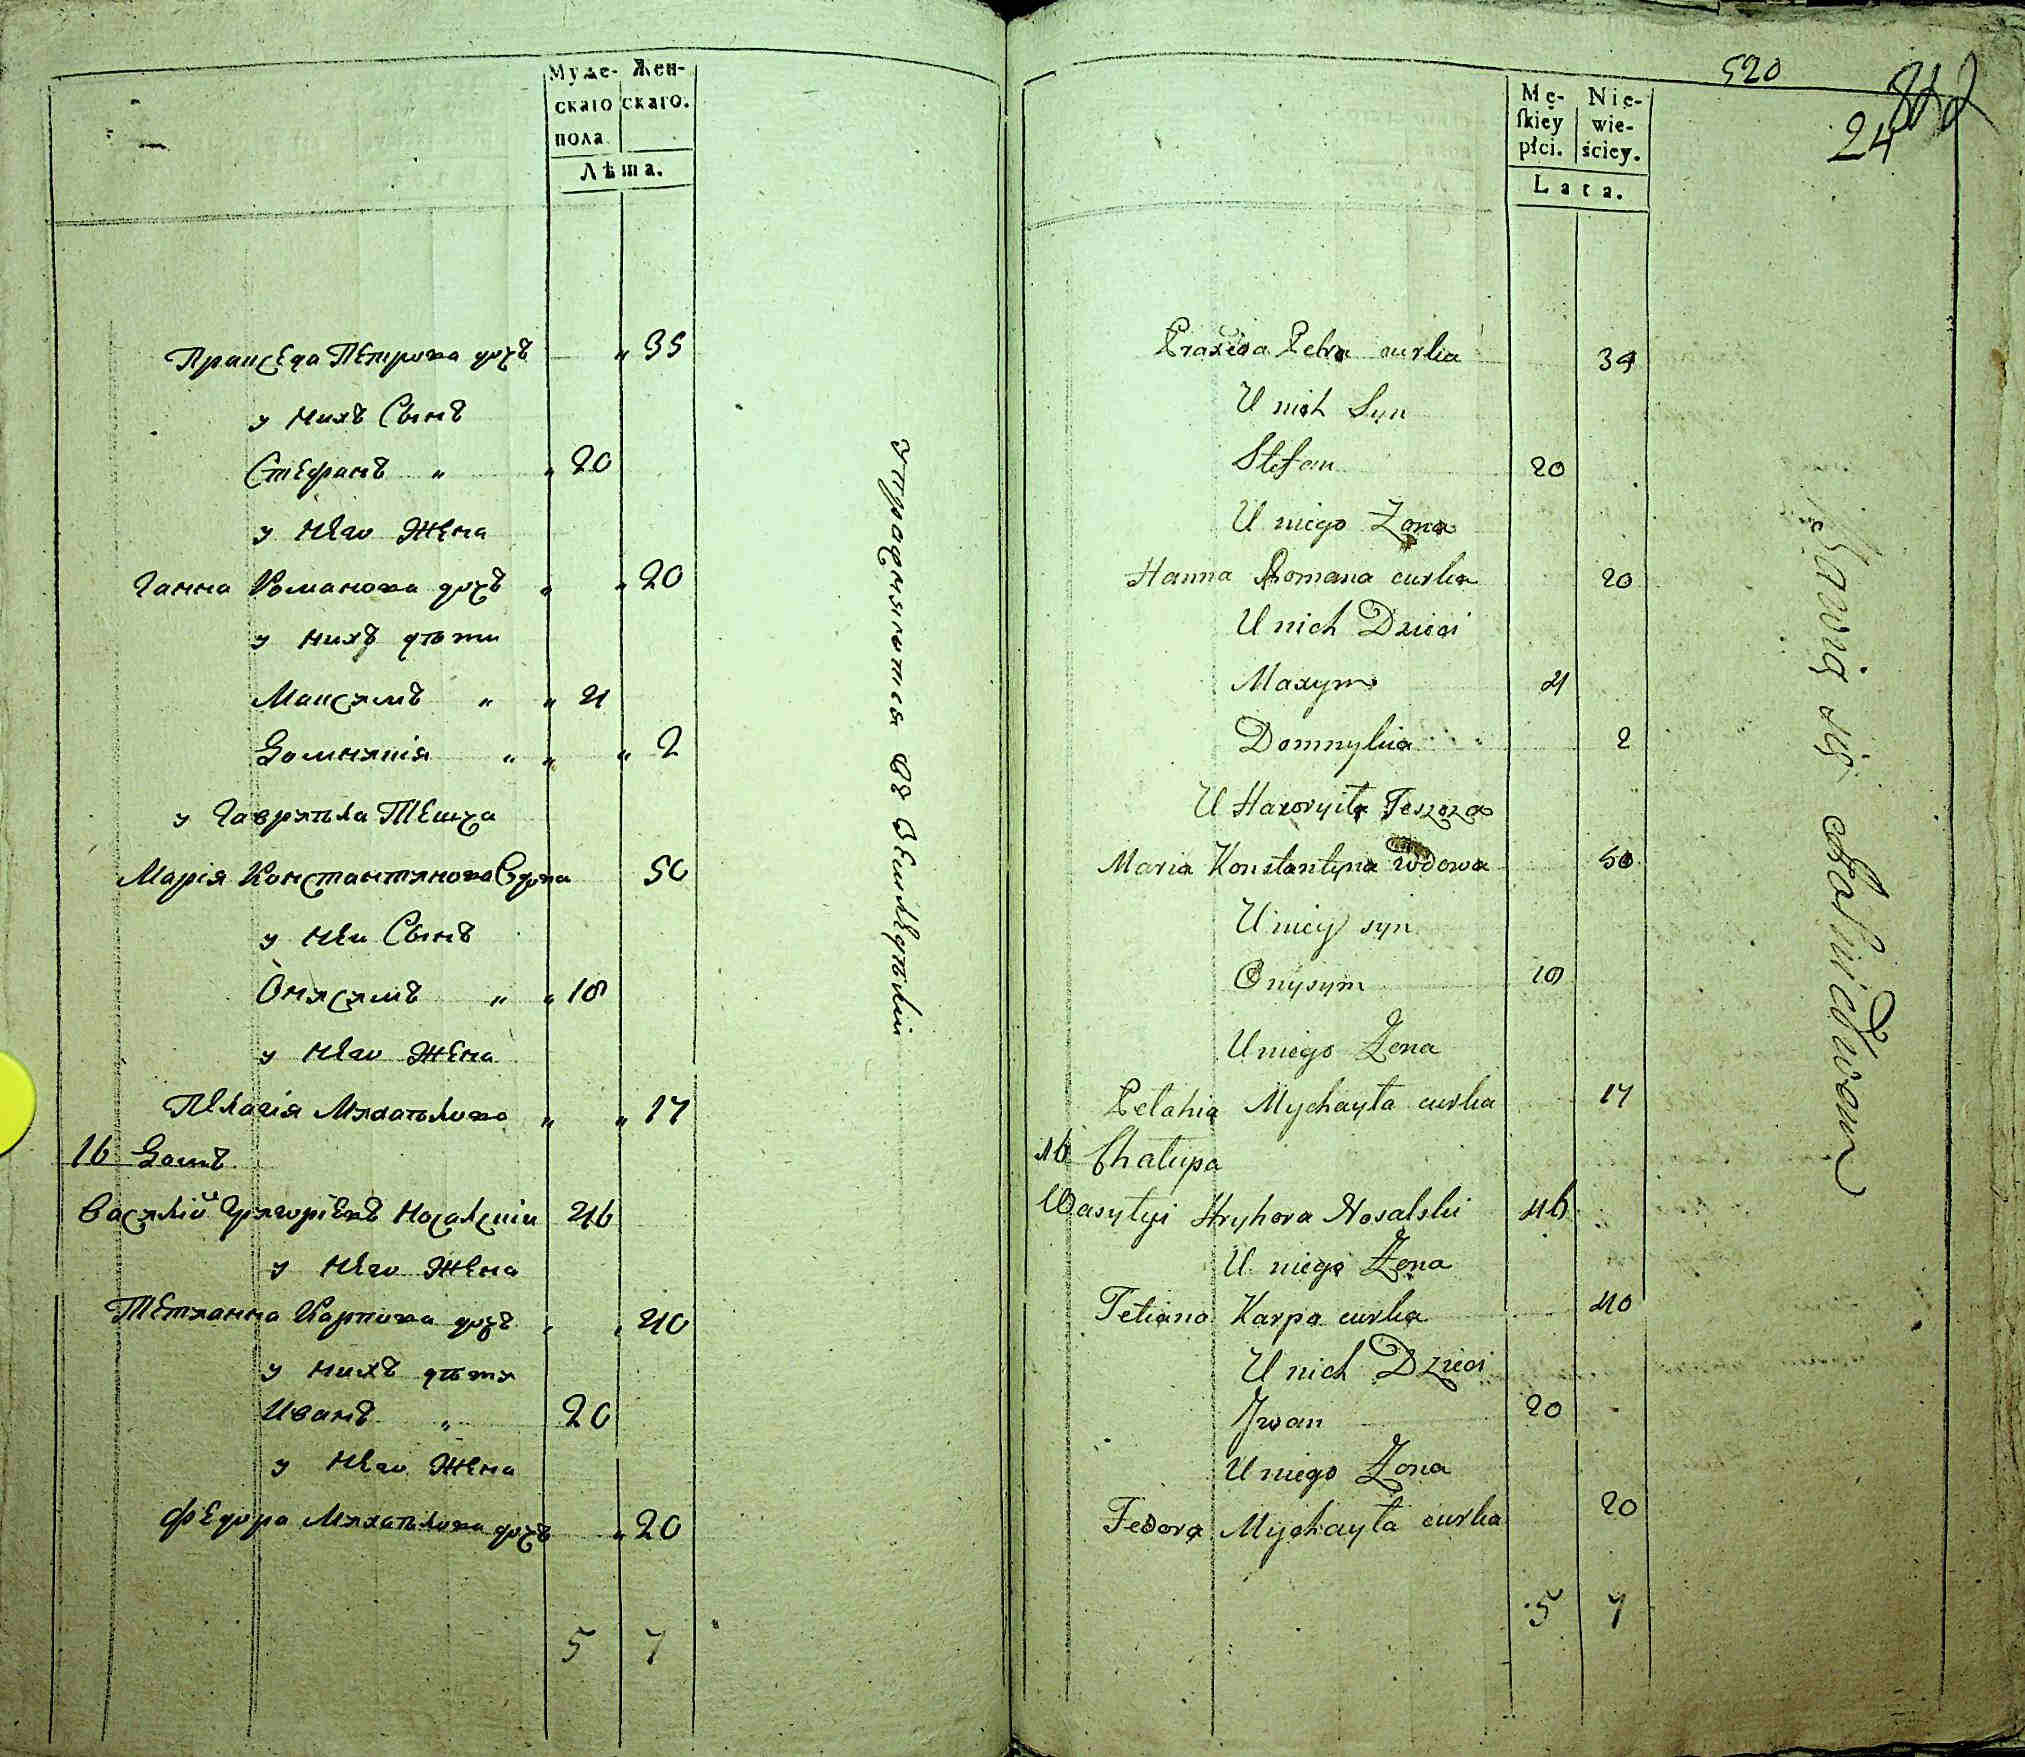 Муже- Жен-
скаго скаго.
пола
Лѣта.
Пракседа Петрова дочъ 35
у нихъ Сынъ
Стефанъ 20
у него Жена
Ганна Романова дочъ 20
у нихъ дѣти
Максимъ 4
Домникія 2
у Гавриила Теща
Марія Константинова Вдова 50
у неи Сынъ
Онисимъ 18
у него Жена
Пелагія Михайлова 17
16 Домъ
Василій Григорiевъ Носалскiи 46
у него Жена
Тетианна Карпова дочъ 40
у нихъ дѣти
Иванъ 20
у него Жена
Федора Михайлова дочъ 20
5 7
Упрадняются въ Земледѣліи
520
24
Mę- Nie-
skiey wie-
płci. ściey.
Lata.
Praxeda Petra curka 34
U nich Syn
Stefan 20
U niego Zona
Hanna Romana curka 20
U nich Dzieci
Maxym 4
Domnykia 2
U Hawryiła Teszcza
Maria Konstantyna Wdowa 50
U niey syn
Onysym 18
U niego Zona
Pelahia Mychayła curka 17
16 Chałupa
Wasylyi Hryhora Nosalski 46
U niego Zona
Tetiana Karpa curka 40
U nich Dzieci
Jwan 20
U niego Zona
Fedora Mychayła curka 20
5 7
Bawią się Rolnictwem